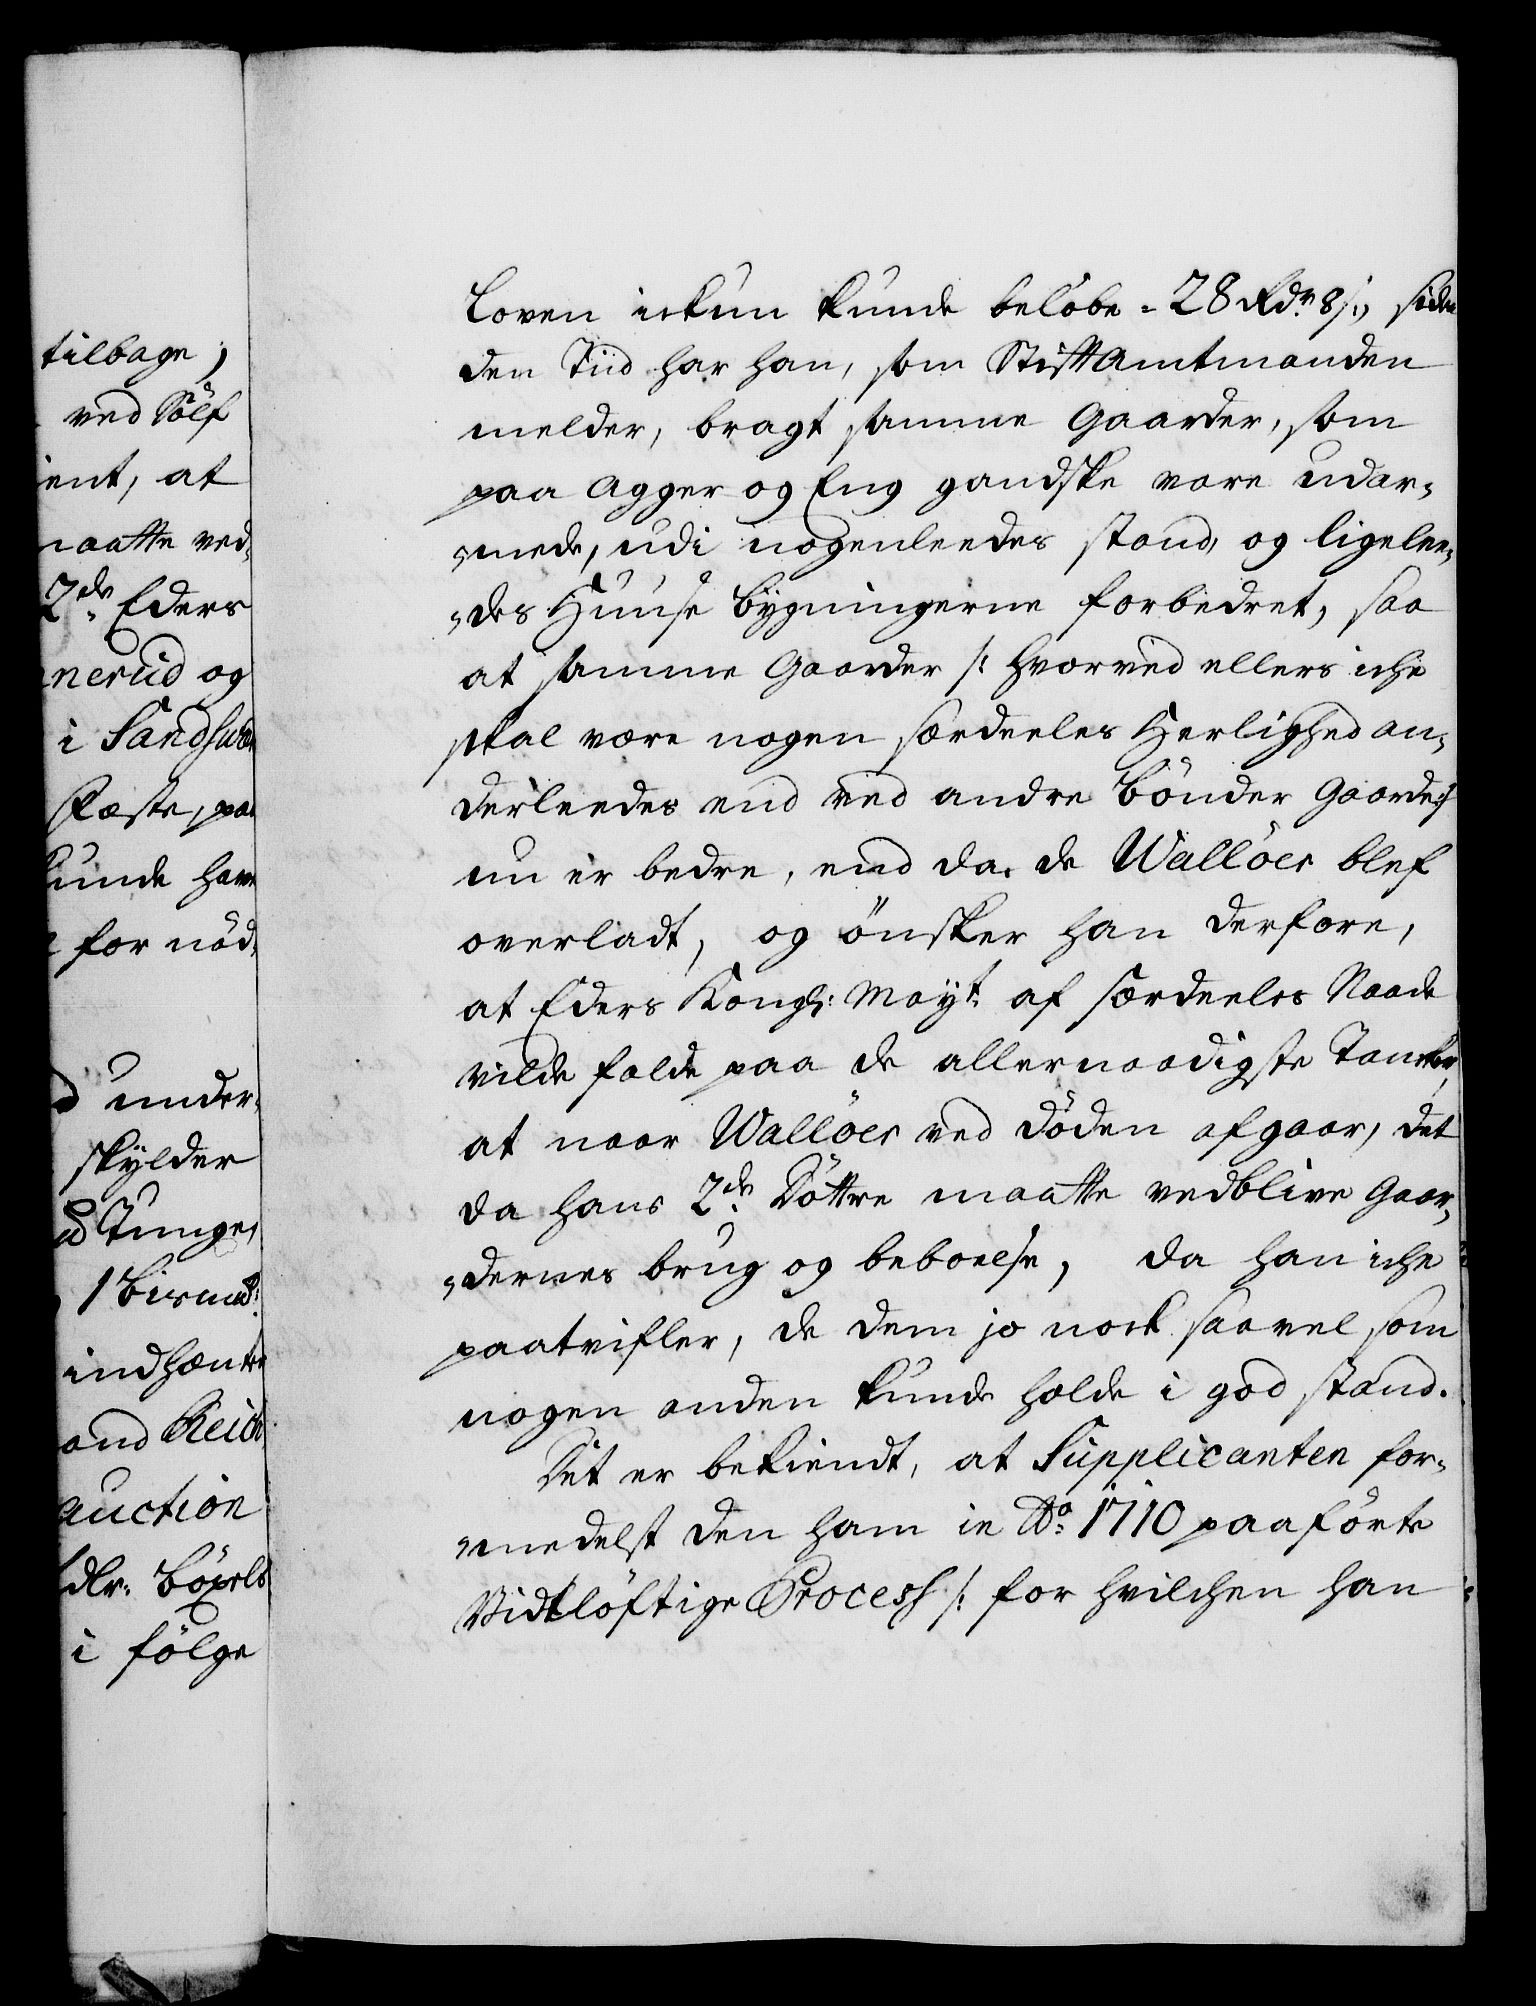 tilbage;
ved Sölf
ent, at
maatte ved-
2de Eders
nerud og
i Sandsvær
Fæste, paa
kunde have
for nöd-
under-
skylder
Tunge,
1 Bismd:
indhænte
and Reich
auction
dlr: Böxels
i fölge
Loven ickun kunde belöbe = 28 Rdr 8 s:, siden
den Tiid har han, som Stiftamtmanden
melder, bragt samme Gaarder, som
paa Agger og Eng gandske vare udar-
mede, udi nogenleedes stand, og ligelee-
des Huuse bygningerne forbedret, saa
at samme Gaarder /: hvorved ellers iche
skal være nogen særdeeles Herlighed an-
derleedes end ved andre Bönder Gaarder :/
nu er bedre, end da de Wallöes blef
overladt, og önsker han derfore,
at Eders Kongl: Mayt: af særdeeles Naade
vilde falde paa de allernaadigste Tancker,
at naar Wallöes ved döden afgaar, det
da hans 2de Döttre maatte vedblive Gaar-
dernes brug og beboelse, da han iche
paatvifler, de dem jo nock saavel som
nogen anden kunde holde i god stand.
Det er bekiendt, at Supplicanten for-
medelst den ham in Ao: 1710 paaförte
Vidtlöftige Process /: for hvilchen han